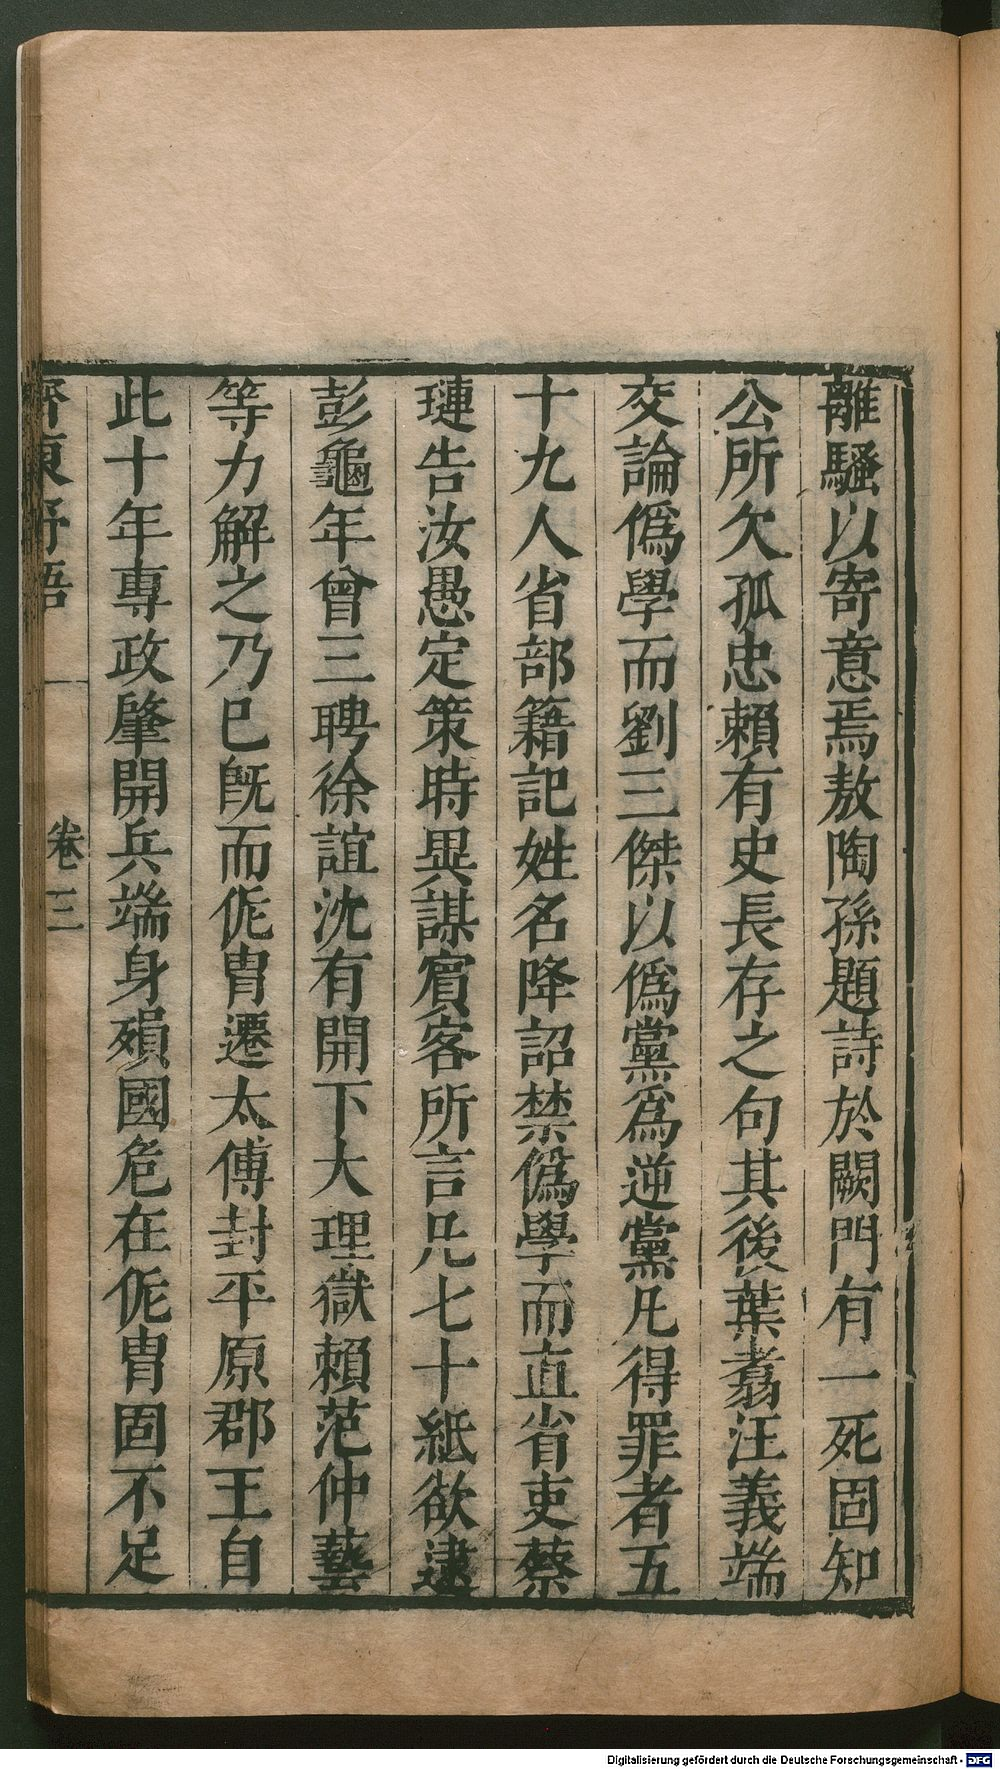 離騷以寄意焉敖陶孫題詩於闕門有一死固知
公所欠孤忠賴有史長存之句其後葉翥汪義端
交論僞學而劉三傑以僞黨爲逆黨凡得罪者五
十九人省部籍記姓名降詔禁僞學而直省吏蔡
璉告汝愚定策時異謀賔客所言凡七十紙欲逮
彭龜年曾三聘徐誼沈有開下大理獄賴范仲藝
等力解之乃已旣而侂冑遷太傅封平原郡王自
此十年專政肇開兵端身殞國危在侂冑固不足
齊東野語
卷三
Digitalisierung gefördert durch die Deutsche Forschungsgemeinschaft - DFG